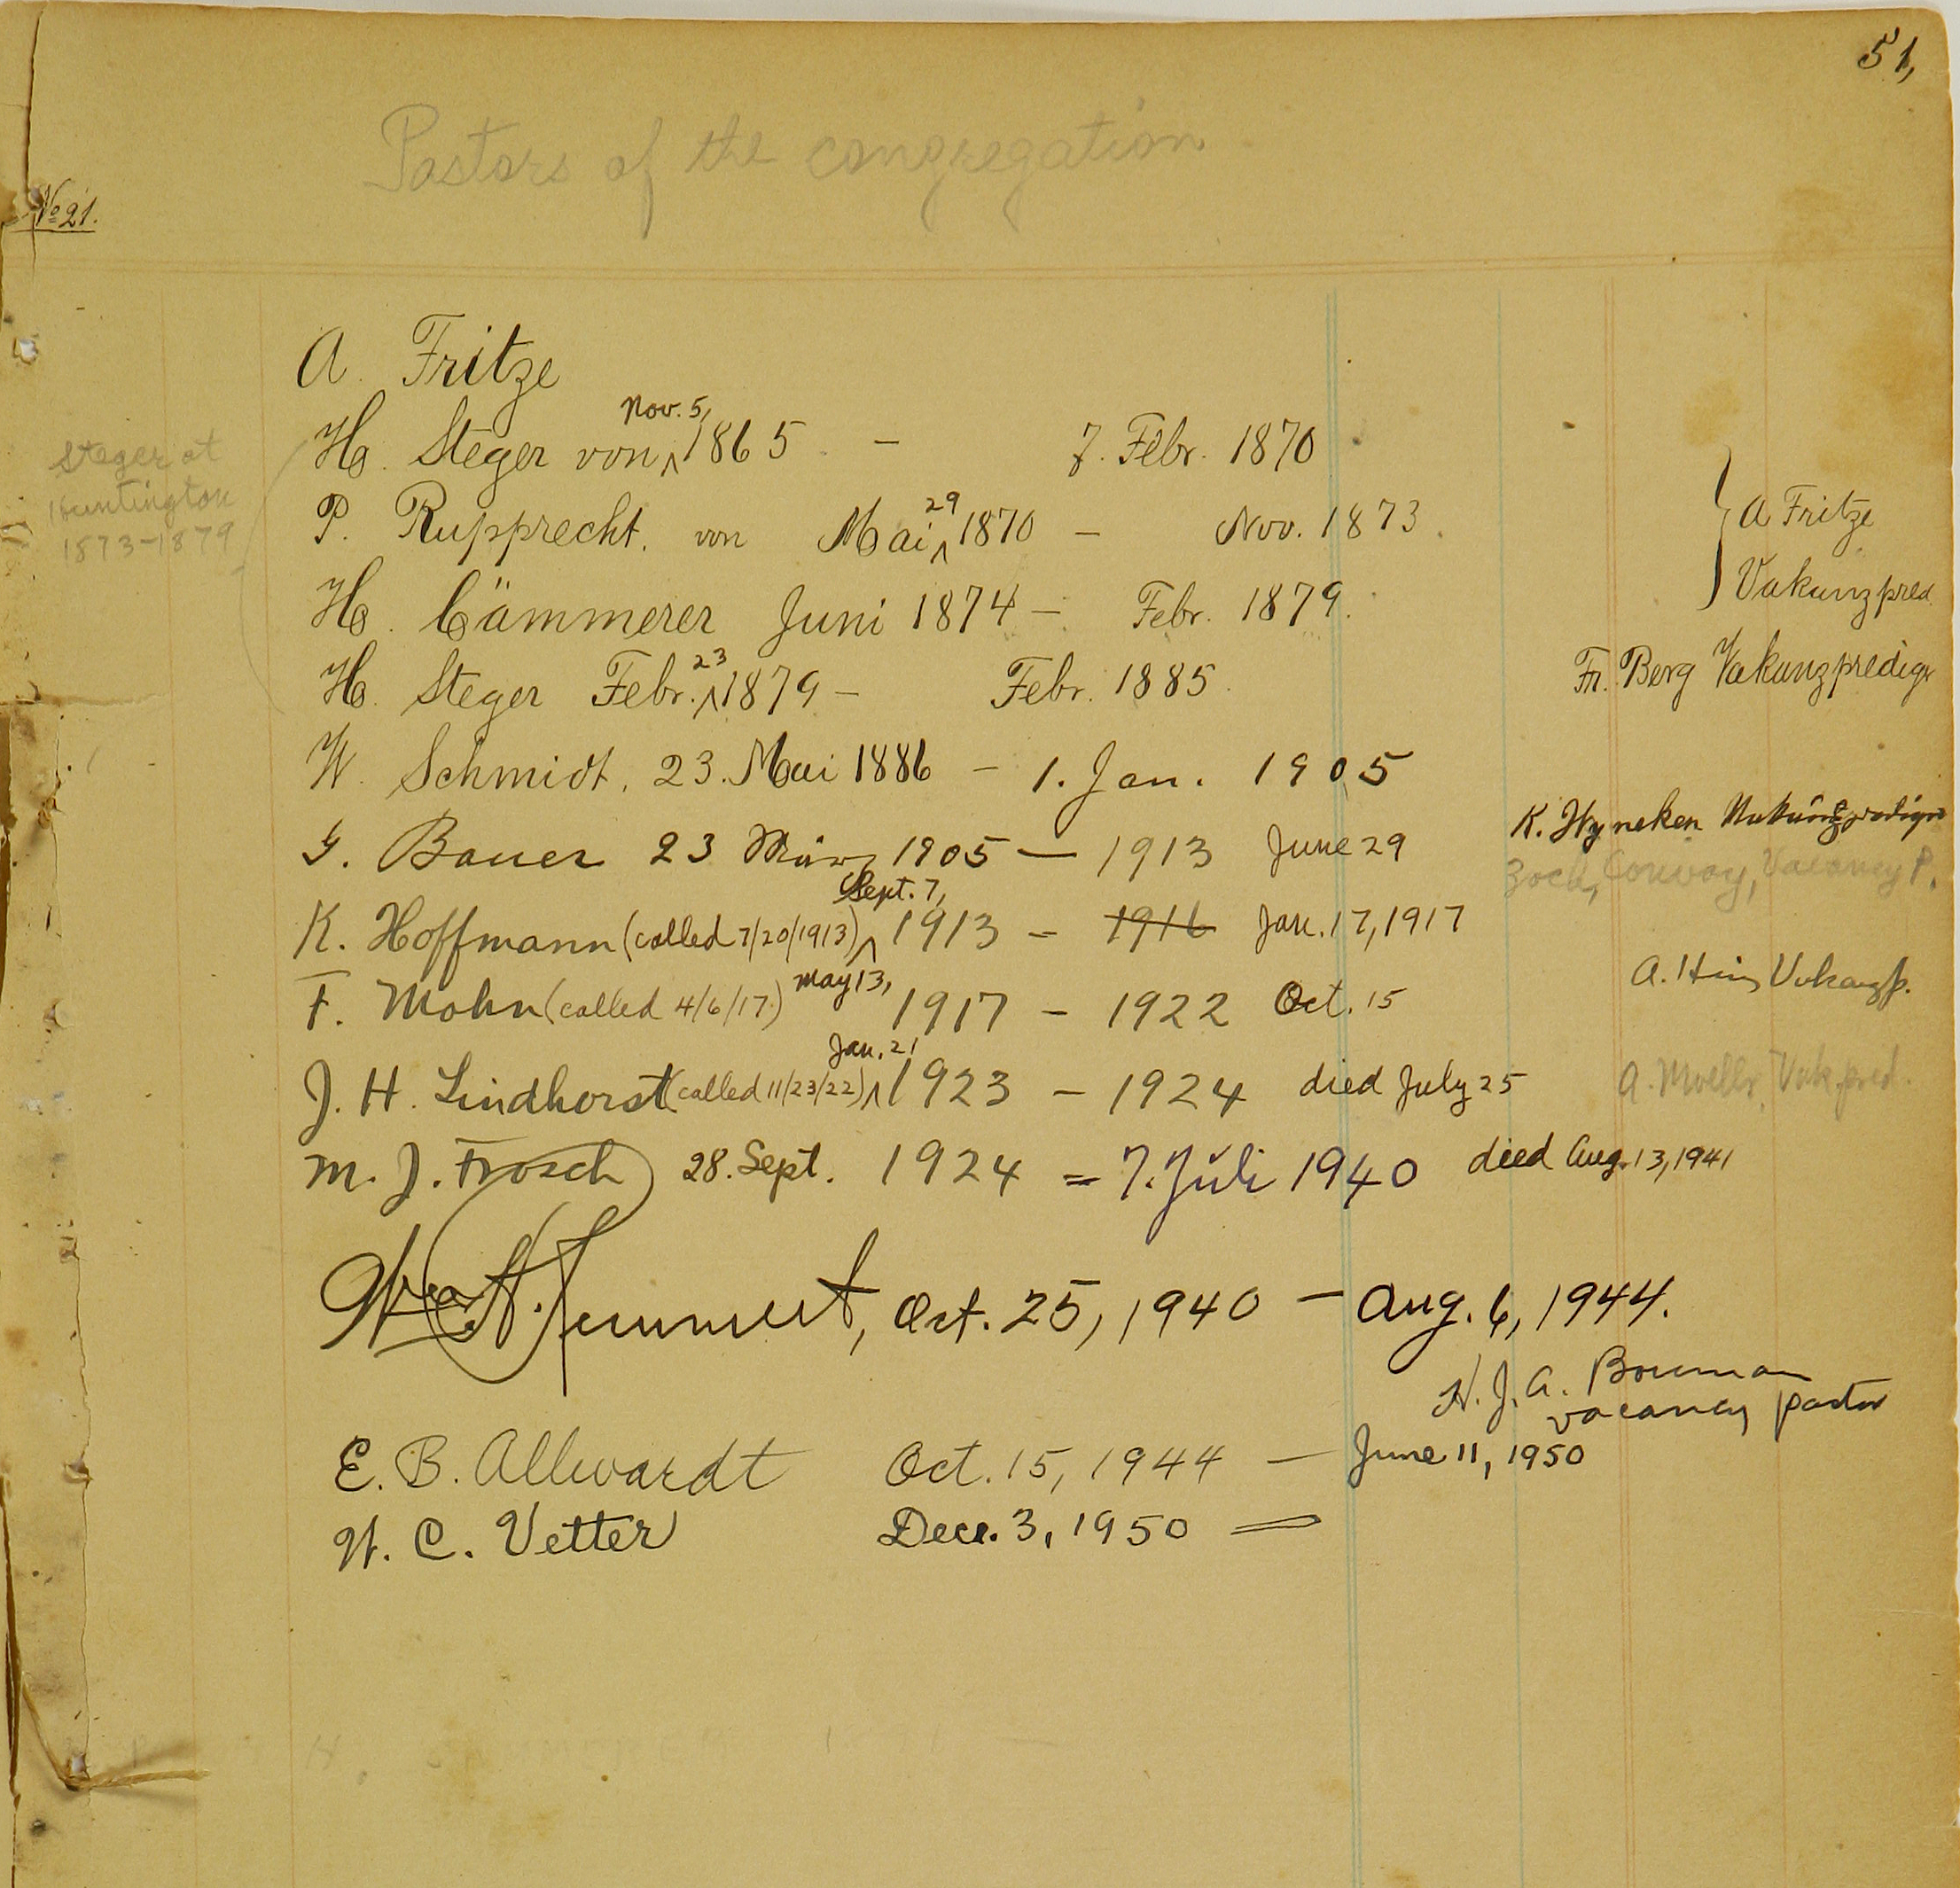 51,
Pastors of the congregation
No 21.
A. Fritze
H. Steger von Nov. 5, 1865 – 7. Febr. 1870
Steger at
Huntington
1873-1879
P. Rupprecht. von Mai 29 1870 – Nov. 1873.
A Fritze
Vakanzpred.
H. Cämmerer Juni 1874 – Febr. 1879.
H. Steger Febr. 23 1879 – Febr. 1885.
Fr. Berg Vakanzpredigr
W. Schmidt, 23. Mai 1886 – 1. Jan. 1905
K. Hyneken Vakanzpredigr
G. Bauer 23 März 1905 – 1913 June 29
Zoch, Conway, Vacancy P.
K. Hoffmann (called 7/20/1913) Sept. 7, 1913 – 1916 Jan. 17, 1917
A. Vakanzp.
F. Mohn (called 4/6/17) May 13, 1917 – 1922 Oct. 15
J. H. Lindhorst (called 11/23/22) Jan. 21 1923 – 1924 died July 25
A. Moeller, Vak. pred.
M. J. Frosch 28. Sept. 1924 = 7. Juli 1940 died Aug. 13, 1941
Oct. 25, 1940 – Aug. 6, 1944.
H. J. A. Bouman
vacancy pastor
E. B. Allwardt Oct. 15, 1944 – June 11, 1950
W. C. Vetter Dec. 3, 1950 =